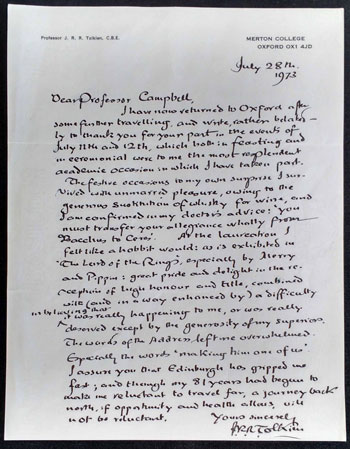 Professor J. R. R. Tolkien, C.B.E.
MERTON COLLEGE
OXFORD OX1 4JD
July 28th.
1973
Dear Professor Campbell,
I have now returned to Oxford after
some further travelling, and write, rather belated-
ly to thank you for your part in the events of
July 11th and 12th, which both in feasting and
in ceremonial were to me the most resplendent
academic occasion in which I have taken part.
The festive occasions to my own surprise I sur-
vived with unmarred pleasure, owing to the
generous substitution of whisky for wine, and
I am confirmed in my doctor's advice: 'You
must transfer your allegiance wholly from
Bacchus to Ceres'. At the laureation I
felt like a hobbit would: as is exhibited in
The Lord of the Rings, especially by Merry
and Pippin: great pride and delight in the re-
ception of high honour and title, combined
with (and in a way enhanced by) a difficulty
in believing that
it was really happening to me, or was really
deserved except by the generosity of my superiors.
The words of the Address left me overwhelmed.
Especially the words 'making him one of us'
I assure you that Edinburgh has gripped me
fast; and though my 81 years had begun to
make me reluctant to travel far, a journey back
north, if opportunity and health allows, will
not be reluctant.
Yours sincerely
JRR Tolkien